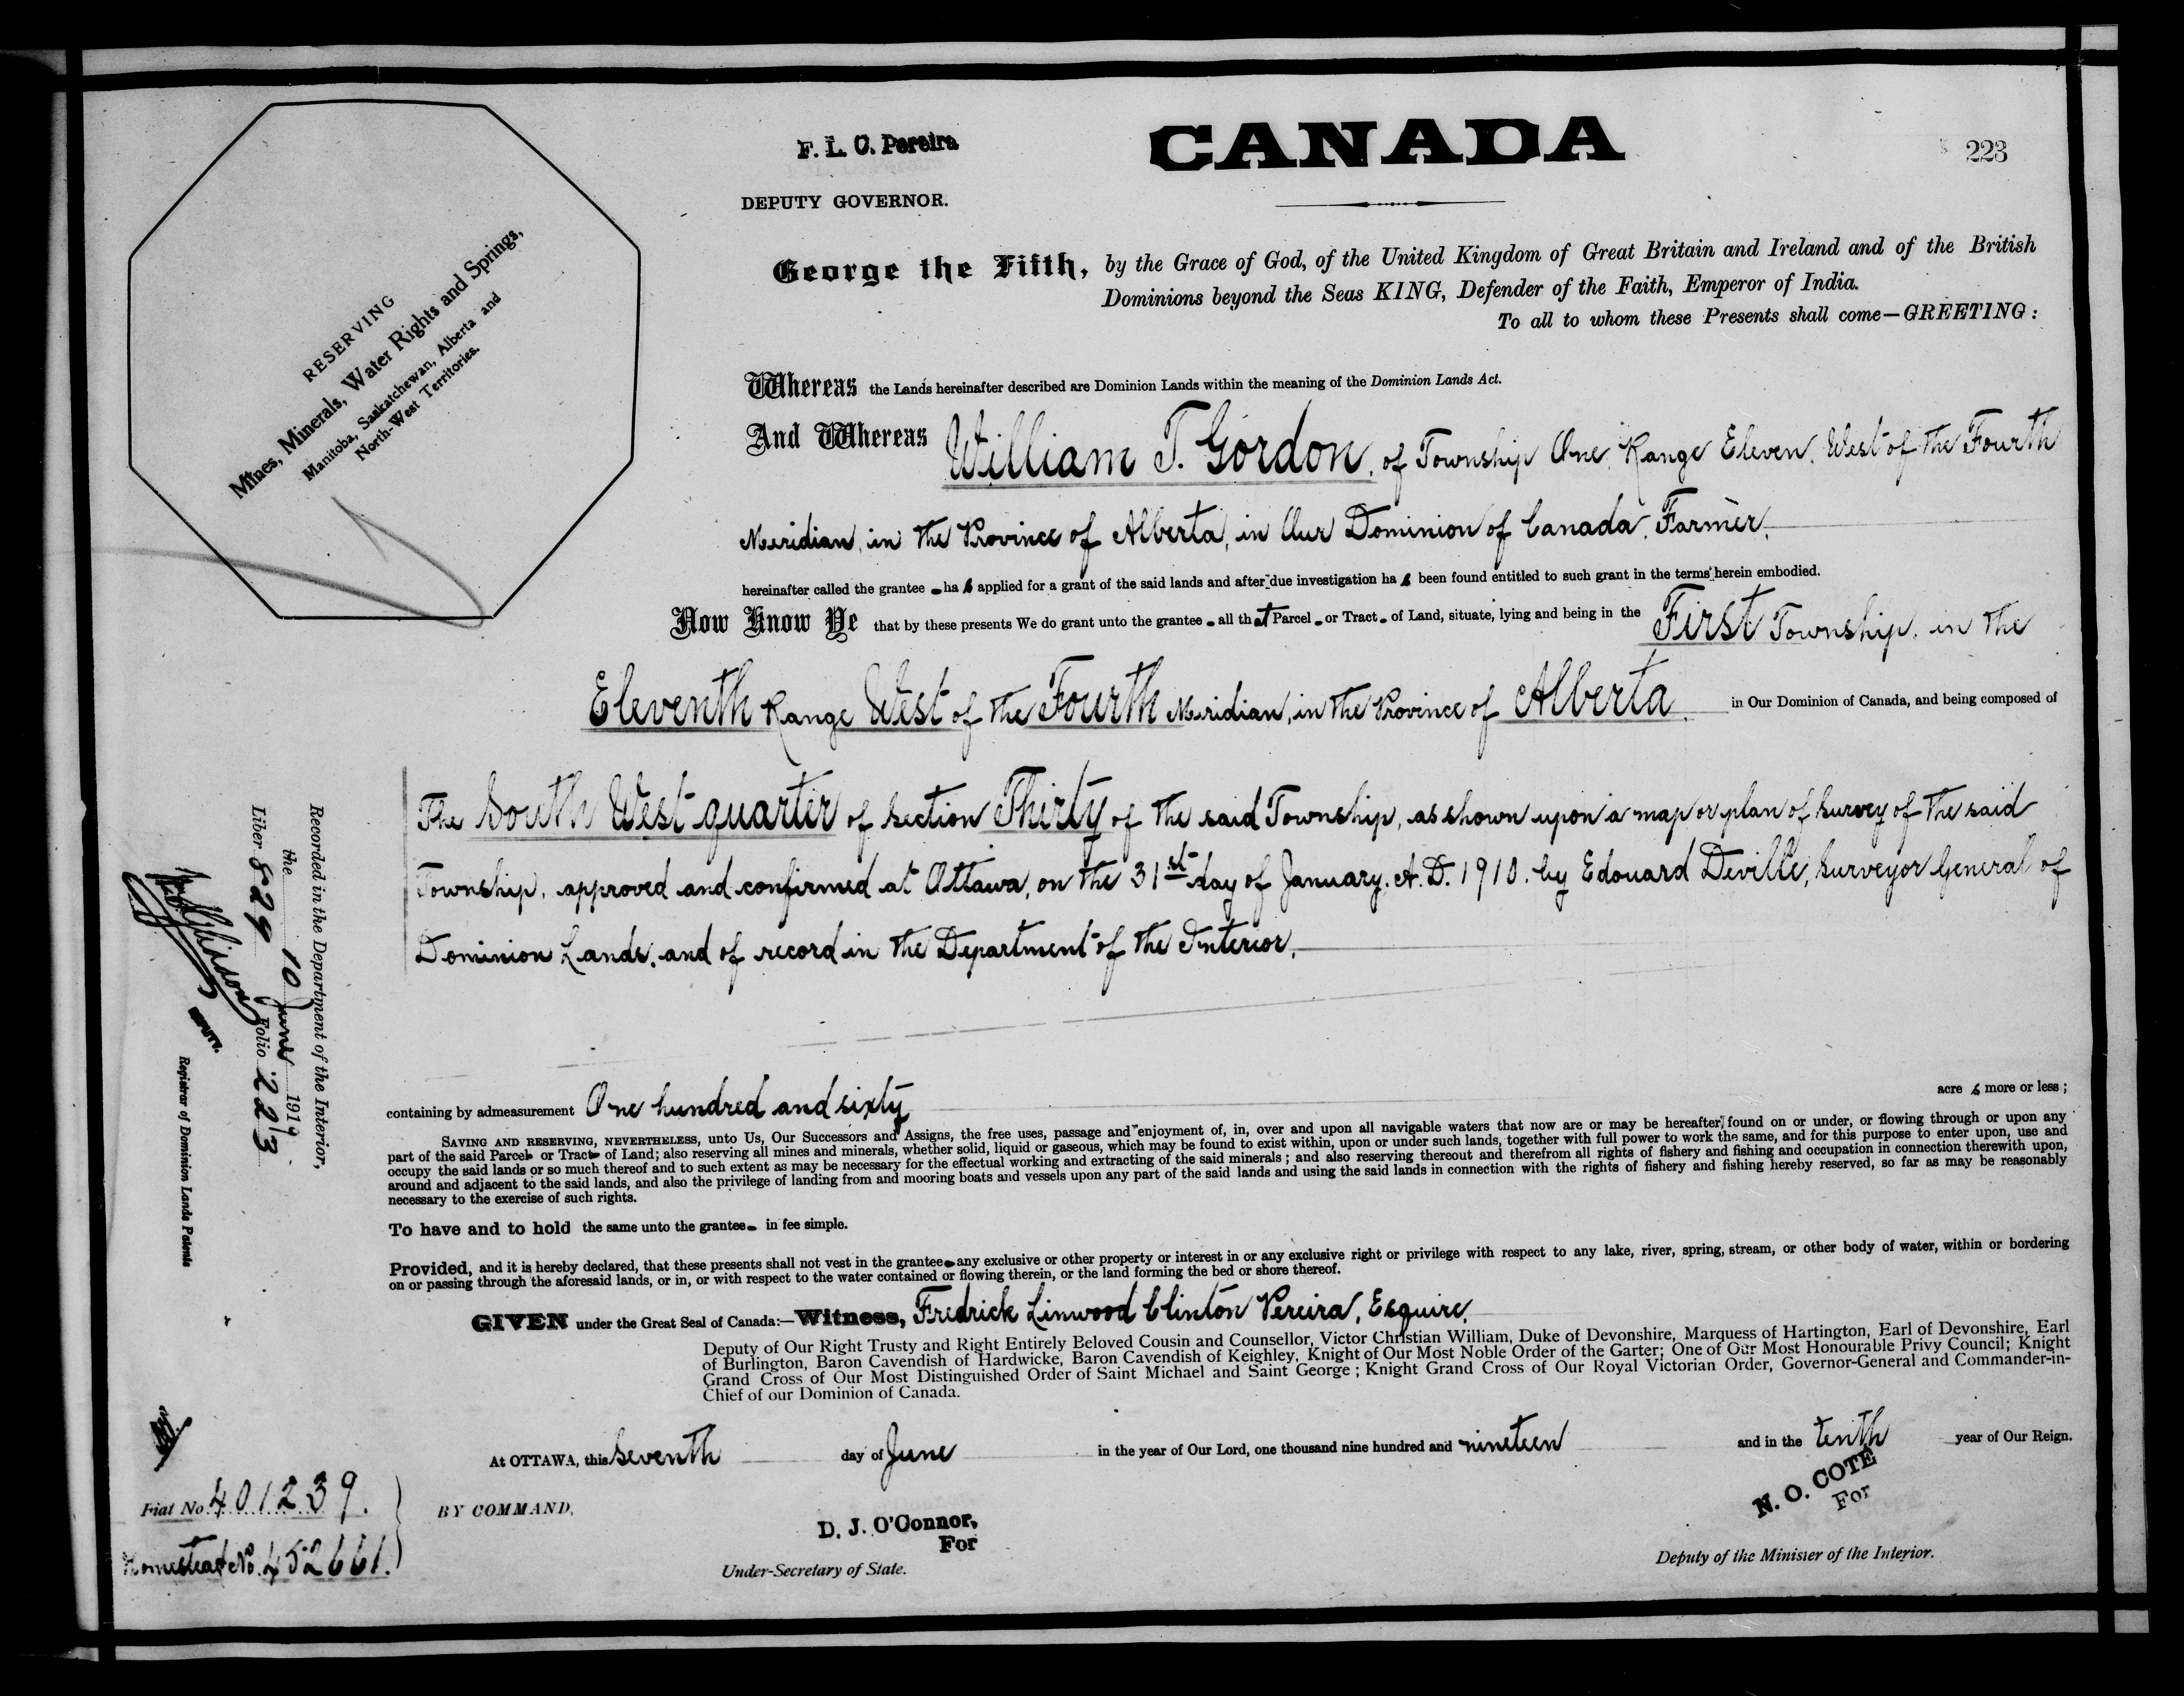 F. L. C. Pereira
CANADA
223
DEPUTY GOVERNOR.
RESERVING
Mines, Minerals, Water Rights and Springs,
Manitoba, Saskatchewan, Alberta and
North-West Territories.
George the Fifth, by the Grace of God, of the United Kingdom of Great Britain and Ireland and of the British
Dominions beyond the Seas KING, Defender of the Faith, Emperor of India.
To all to whom these Presents shall come—GREETING:
Whereas the Lands hereinafter described are Dominion Lands within the meaning of the Dominion Lands Act.
And Whereas William T. Gordon, of Township One, Range Eleven, West of the Fourth
Meridian, in the Province of Alberta, in Our Dominion of Canada, Farmer,
hereinafter called the grantee has applied for a grant of the said lands and after due investigation has been found entitled to such grant in the terms herein embodied.
Now Know Ye that by these presents We do grant unto the grantee all that Parcel or Tract of Land, situate, lying and being in the First Township, in the
Eleventh Range West of the Fourth Meridian, in the Province of Alberta, in Our Dominion of Canada, and being composed of
The South West quarter of Section Thirty of the said Township, as shown upon a map or plan of survey of the said
Township, approved and confirmed at Ottawa, on the 31st day of January, A.D. 1910, by Edouard Deville, Surveyor General of
Dominion Lands, and of record in the Department of the Interior,
containing by admeasurement One hundred and sixty acres more or less;
SAVING AND RESERVING, NEVERTHELESS, unto Us, Our Successors and Assigns, the free uses, passage and enjoyment of, in, over and upon all navigable waters that now are or may be hereafter found on or under, or flowing through or upon any
part of the said Parcel or Tract of Land; also reserving all mines and minerals, whether solid, liquid or gaseous, which may be found to exist within, upon or under such lands, together with full power to work the same, and for this purpose to enter upon, use and
occupy the said lands or so much thereof and to such extent as may be necessary for the effectual working and extracting of the said minerals; and also reserving thereout and therefrom all rights of fishery and fishing and occupation in connection therewith upon,
around and adjacent to the said lands, and also the privilege of landing from and mooring boats and vessels upon any part of the said lands and using the said lands in connection with the rights of fishery and fishing hereby reserved, so far as may be reasonably
necessary to the exercise of such rights.
To have and to hold the same unto the grantee in fee simple.
Provided, and it is hereby declared, that these presents shall not vest in the grantee any exclusive or other property or interest in or any exclusive right or privilege with respect to any lake, river, spring, stream, or other body of water, within or bordering
on or passing through the aforesaid lands, or in, or with respect to the water contained or flowing therein, or the land forming the bed or shore thereof.
GIVEN under the Great Seal of Canada:—Witness, Fredrick Linwood Clinton Pereira, Esquire,
Deputy of Our Right Trusty and Right Entirely Beloved Cousin and Counsellor, Victor Christian William, Duke of Devonshire, Marquess of Hartington, Earl of Devonshire, Earl
of Burlington, Baron Cavendish of Hardwicke, Baron Cavendish of Keighley, Knight of Our Most Noble Order of the Garter; One of Our Most Honourable Privy Council; Knight
Grand Cross of Our Most Distinguished Order of Saint Michael and Saint George; Knight Grand Cross of Our Royal Victorian Order, Governor-General and Commander-in-
Chief of our Dominion of Canada.
At OTTAWA, this Seventh day of June in the year of Our Lord, one thousand nine hundred and nineteen and in the tenth year of Our Reign.
BY COMMAND,
D. J. O'Connor,
For
Under-Secretary of State.
N. O. COTE
For
Deputy of the Minister of the Interior.
Recorded in the Department of the Interior,
the 10 June 1919
Liber 829 Folio 223
DEPUTY.
Registrar of Dominion Lands Patents
Fiat No. 401239.
Homestead No. 452661.